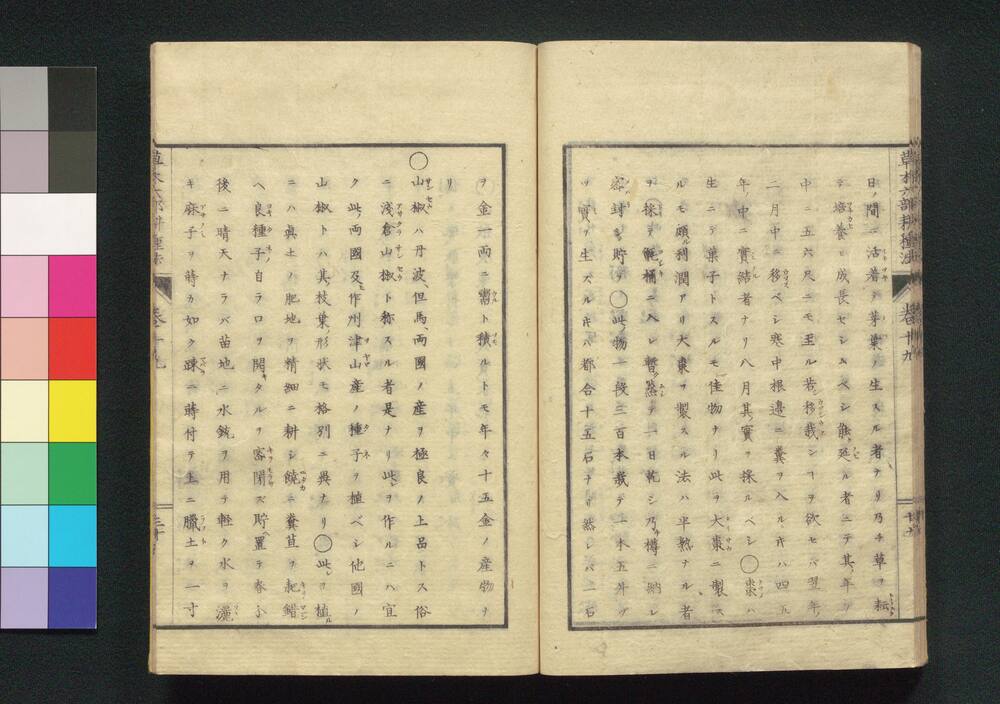 草木六部耕種法 卷十九
日ノ間ニ活着テ芽葉ヲ生スル者ナリ乃チ草ヲ耘
テ培養ヒ成長セシムベシ能ク延ル者ニテ其年ノ
中ニ五六尺ニモ至ル若シ移栽ンコヲ欲セバ翌年ノ
二月中ニ移ベシ寒中根邊ニ糞ヲ入ルキハ四五
年中ニ實結者ナリ八月其實ヲ採ルベシ〇棗ハ
生ニテ菓子トスルモ佳物ナリ此ヲ大棗ニ製ス
ルモ頗ル利潤アリ大棗ヲ製スル法ハ半熟ナル者
ヲ採テ甑桶ニ入レ暫ク蒸テ一日乾シ乃樽ニ納レ
密封シ貯フ〇此物一段三百本栽テ一本五升ヅ
ツ實ヲ生ズルキハ都合十五石ナリ然レバ二石
ヲ金一兩ニ鬻ト積ルトモ年々十五金ノ產物ヲ
リ
〇山椒ハ丹波、但馬、兩國ノ產ヲ極良ノ上品トス俗
ニ淺倉山椒ト称スル者是ナリ此ヲ作ルニハ宜
ク此兩國及ビ作州津山產ノ種子ヲ植ベシ他國ノ
山椒トハ其枝葉ノ形状モ格別ニ異ナリ〇此ヲ植ル
ニハ眞土ノ肥地ヲ精細ニ耕シ饒ニ糞苴ヲ耙錯
ヘ良種子自ラ口ヲ開キタルヲ密閉ズ貯ヘ置テ春分
後ニ晴天ナラバ苗地ニ水銃ヲ用テ軽ク水ヲ灑
キ麻子ヲ蒔カ如ク疎ニ蒔付テ上ニ臘土ヲ一寸